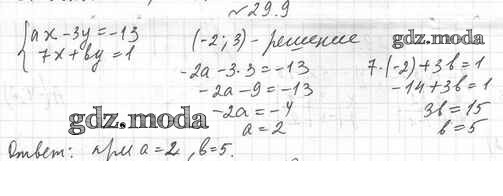 №29.9
{ax-3y=-13
7x+by=1
(-2; 3) - решение
gdz.moda
-2a-3·3=-13
-2a-9=-13
-2a=-4
a=2
7·(-2)+3b=1
-14+3b=1
3b=15
b=5
gdz.moda
Ответ: при a=2, b=5.